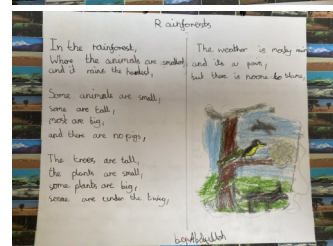 Rainforests
In the rainforest,
Where the animals are smallest,
and it rains the hardest,
Some animals are small,
some are tall,
most are big,
and there are no pigs,
The trees are tall,
the plants are small,
some plants are big,
some are under the twig,
The weather is mostly rain
and its a pain,
but there is noone to blame,
by Abdullah